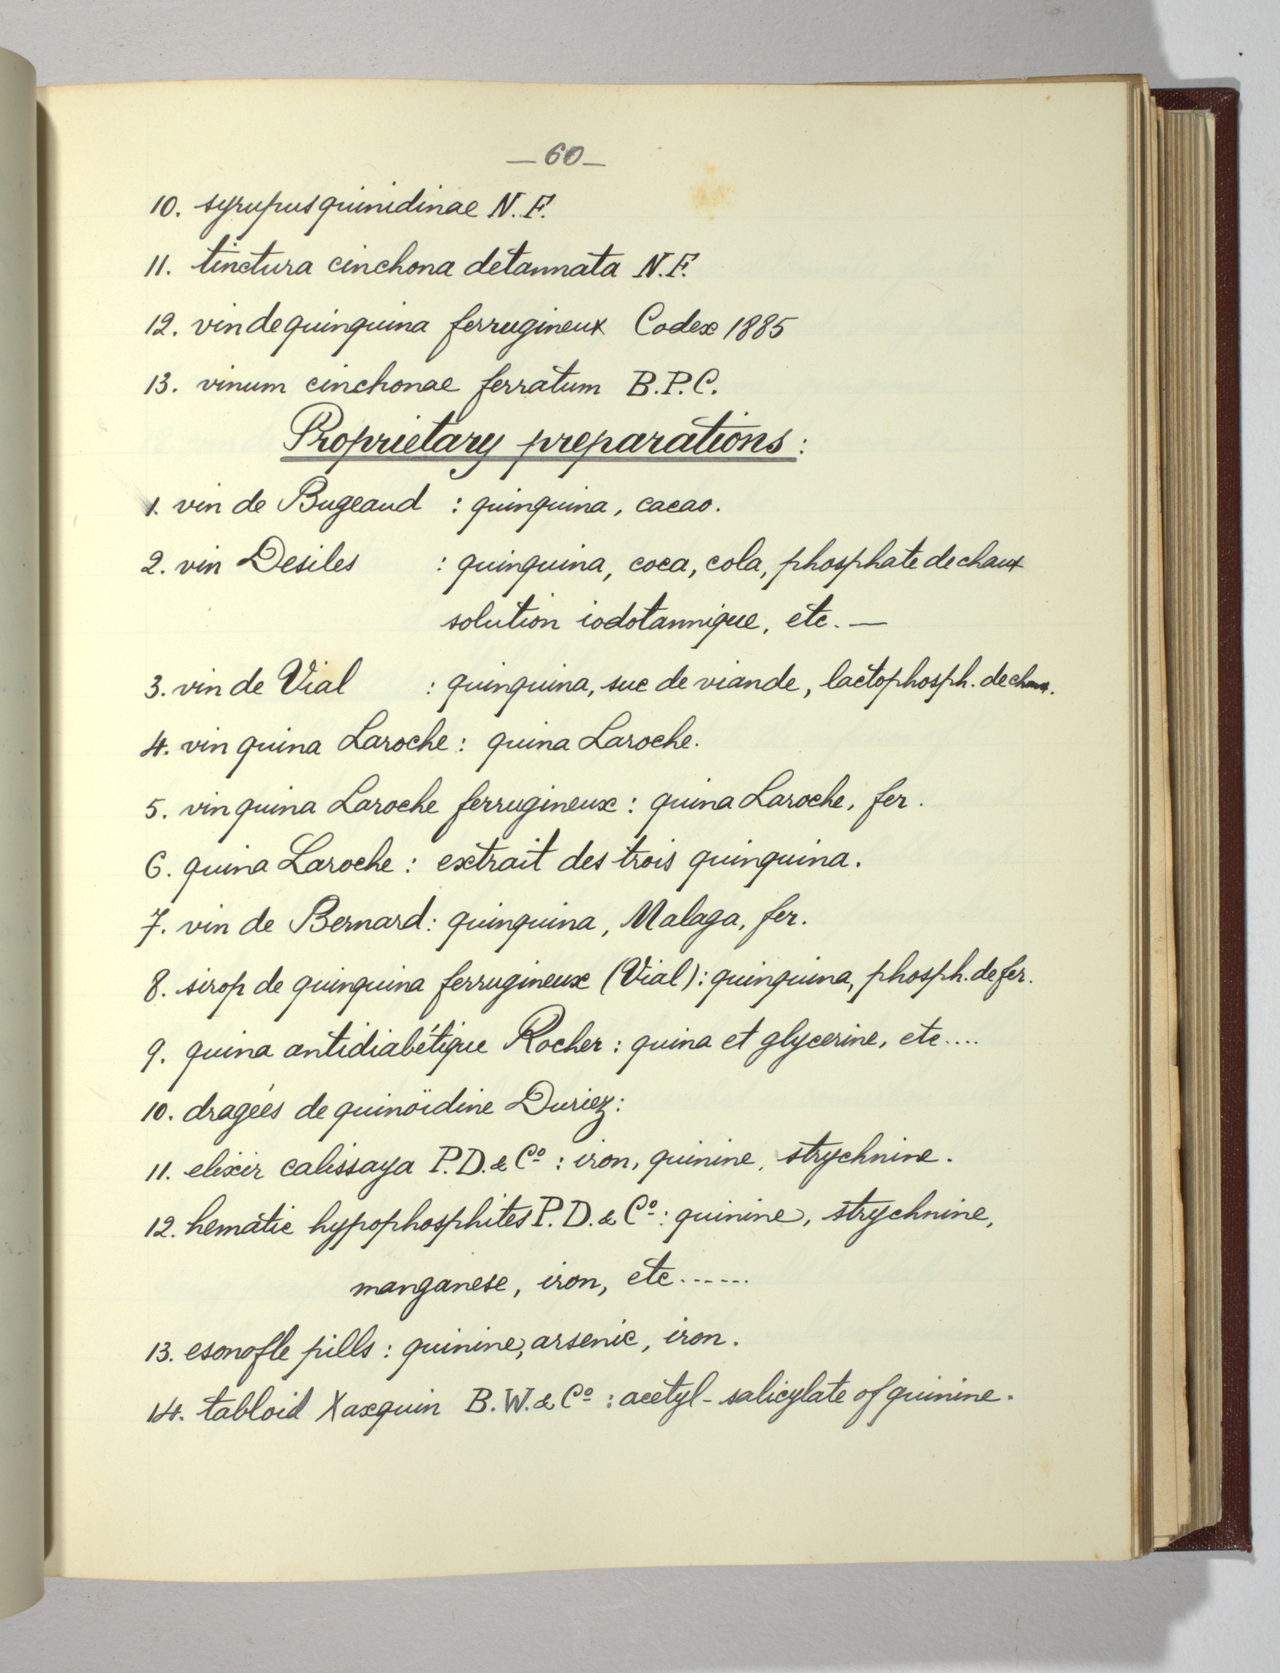 — 60 —
10. syrupus quinidinae N.F.
11. tinctura cinchona detannata N.F.
12. vin de quinquina ferrugineux Codex 1885
13. vinum cinchonae ferratum B.P.C.
Proprietary preparations :
1. vin de Bugeaud : quinquina, cacao.
2. vin Desiles : quinquina, coca, cola, phosphate de chaux
solution iodotannique, etc. —
3. vin de Vial : quinquina, suc de viande, lactophosph. de chaux.
4. vin quina Laroche : quina Laroche.
5. vin quina Laroche ferrugineux : quina Laroche, fer.
6. quina Laroche : extrait des trois quinquina.
7. vin de Bernard : quinquina, Malaga, fer.
8. sirop de quinquina ferrugineux (Vial) : quinquina, phosph. de fer.
9. quina antidiabétique Rocher : quina et glycerine, etc....
10. dragées de quinoïdine Duriez :
11. elixir calissaya P.D. & Co : iron, quinine, strychnine.
12. hematic hypophosphites P.D. & Co : quinine, strychnine,
manganese, iron, etc......
13. esonofle pills : quinine, arsenic, iron.
14. tabloid Xaxquin B.W. & Co : acetyl-salicylate of quinine.